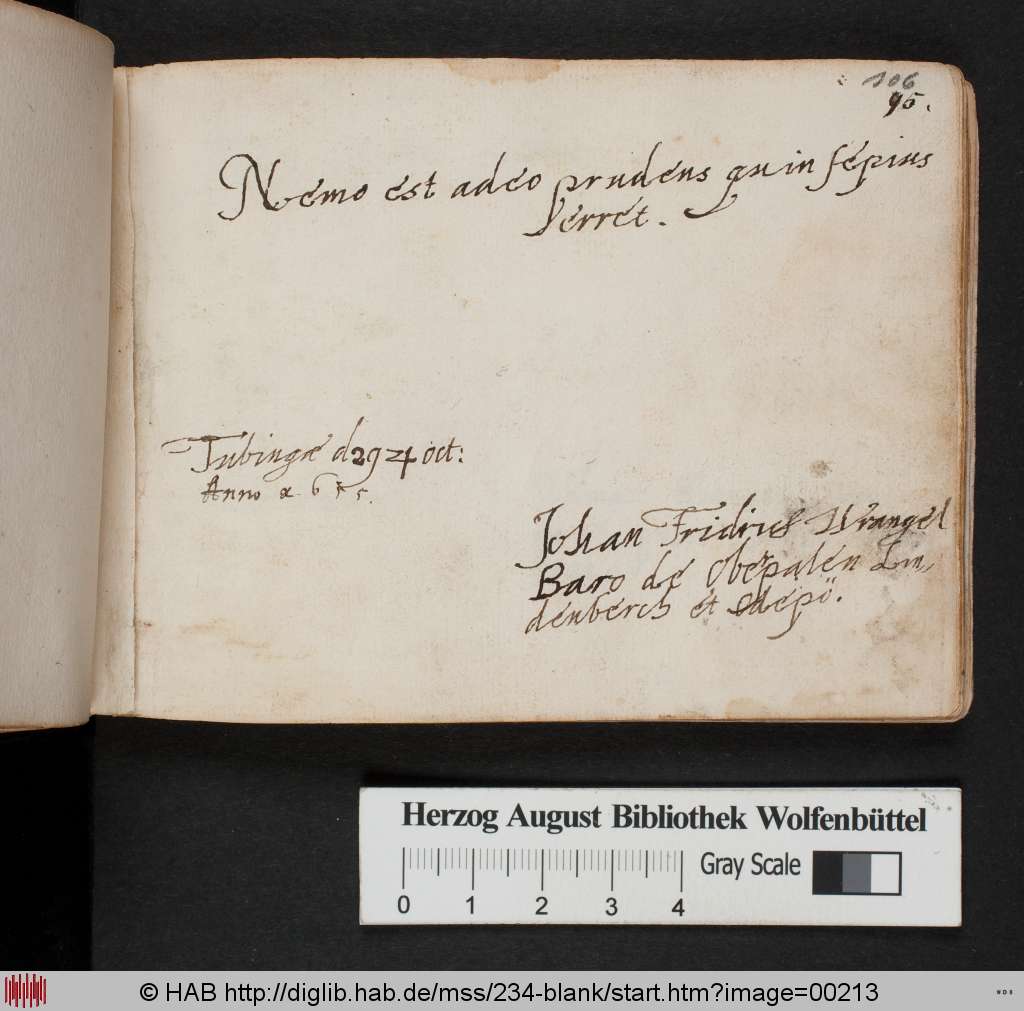 106
95.
Nemo est adeo prudens quin sepius
erret.
Tubingæ d 29 oct:
Anno 1655.
Johan Fridrich Wrangel
Baro de Oberpalen Lin,,
denberch et
Herzog August Bibliothek Wolfenbüttel
Gray Scale
0 1 2 3 4
© HAB http://diglib.hab.de/mss/234-blank/start.htm?image=00213